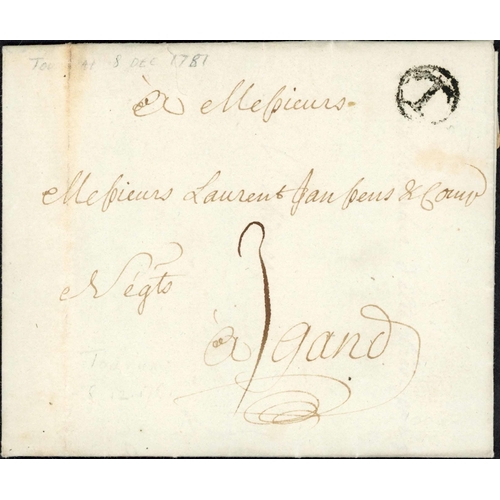 Tournai 8 DEC 1781
à Messieurs
T
Messieurs Laurent Janssens & Comp
Négts
3
à gand